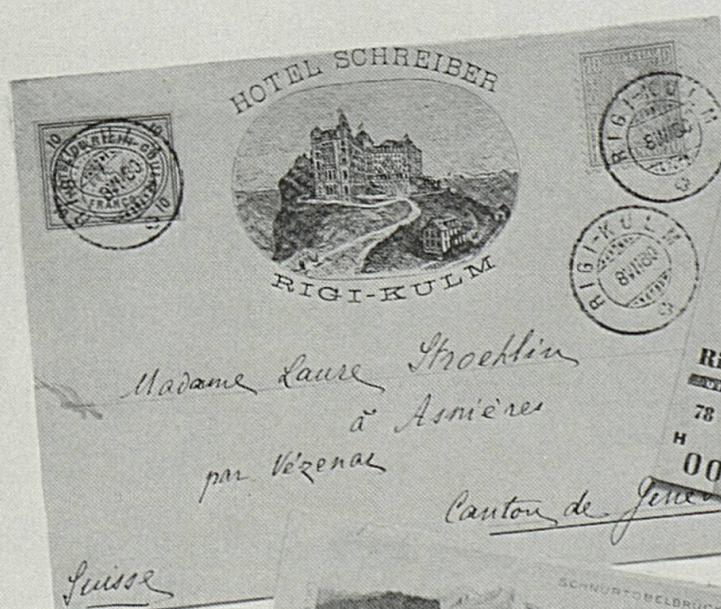 HOTEL SCHREIBER
RIGI-KULM
10 10
10
RIGI-KULM
8 VII 80
FRANCO
RIGI-KULM
8 VII 80
Madame Laure Stroehlin
à Asnières
par Vézenaz
Canton de Genè
Suisse
Ri
78
H
00
SCHNURTOBELBRÜ